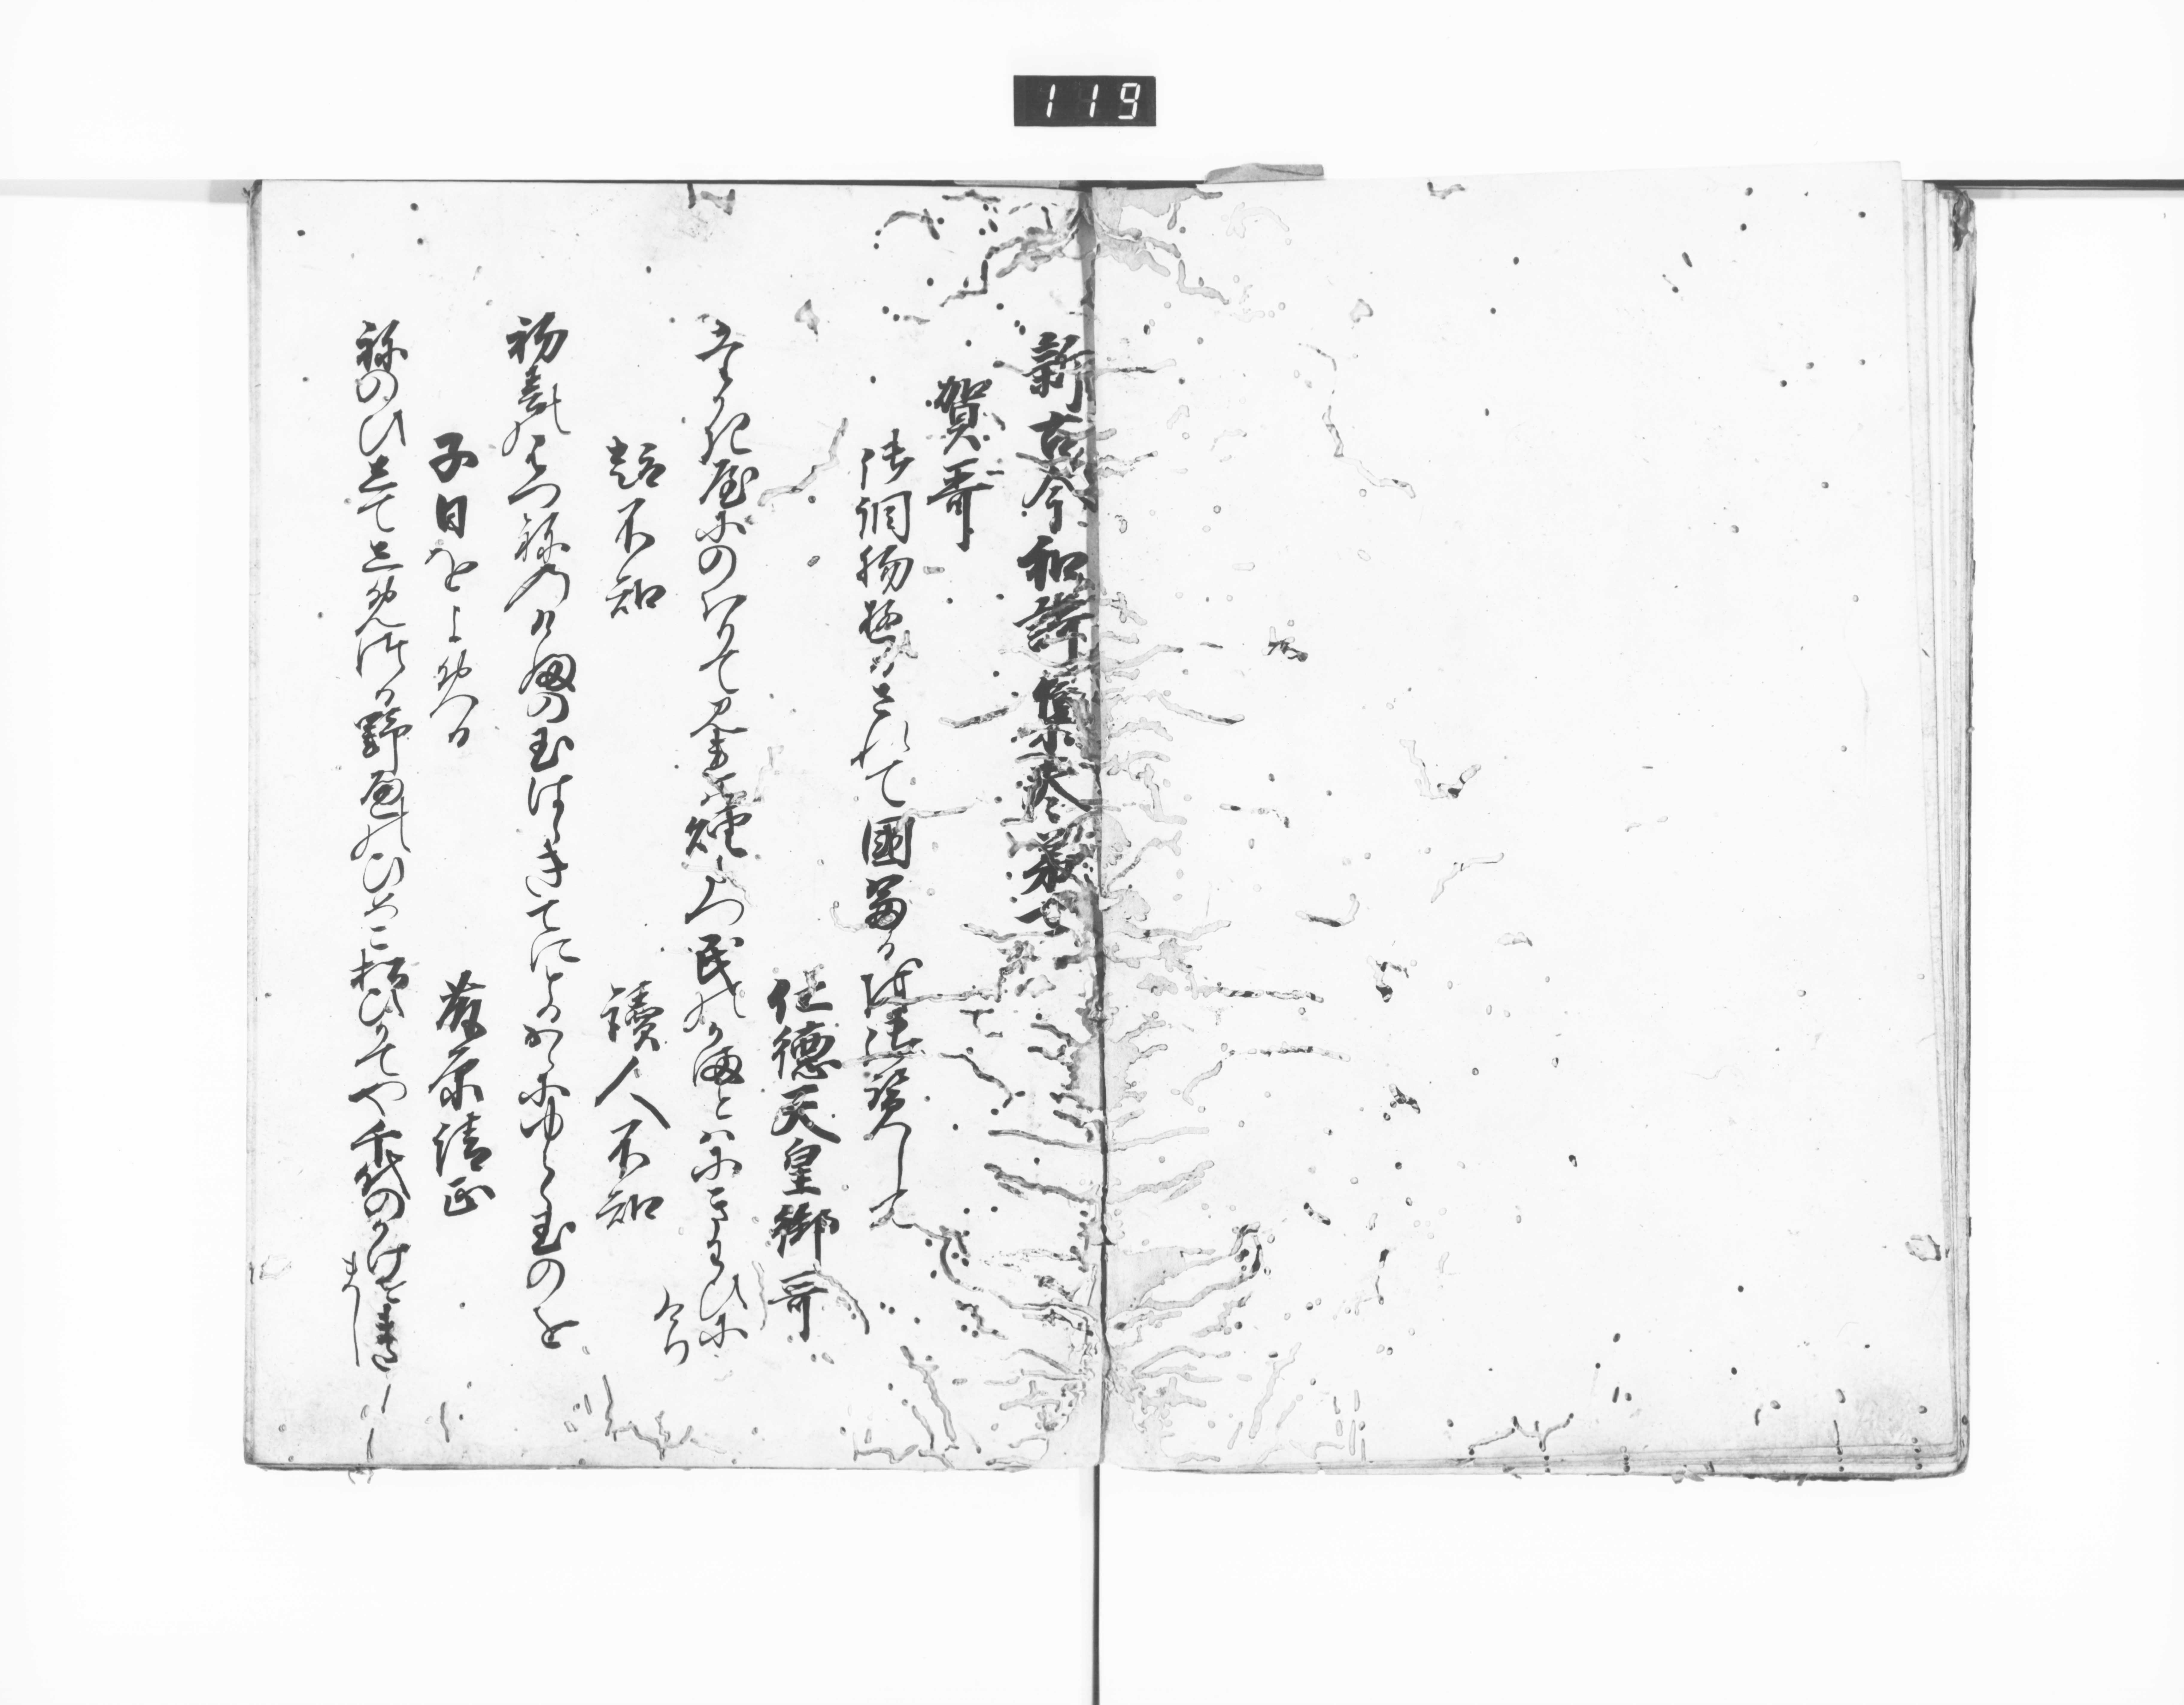 119
新古今和謌集巻第七
賀哥
みつき物ゆるされて國富るを御覧して
仁徳天皇御哥
たかき屋にのほりてみれは煙たつ民のかまとはにきはひに
けり
題不知
讀人不知
初春のはつ祢のけふの玉はゝきてにとるからにゆらく玉のを
子日をよめる
藤原清正
祢のひしてしめつる野邊のひめこ松ひかてや千代のかけを待
まし